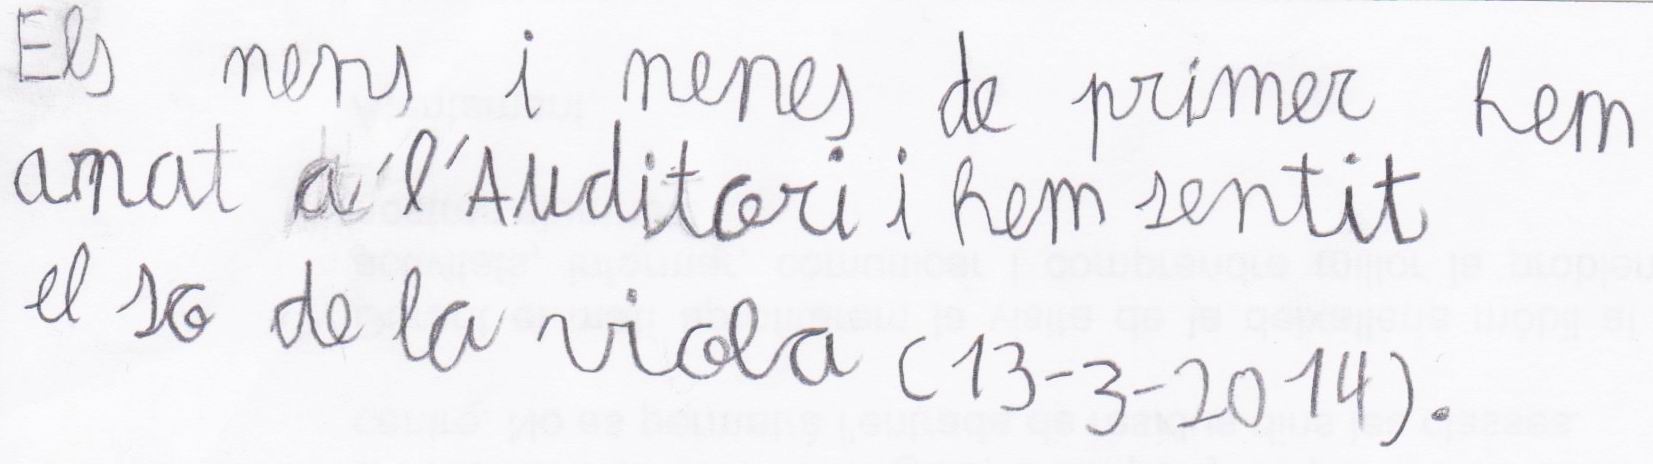 Els nens i nenes de primer hem
anat a l'Auditori i hem sentit
el so de la viola (13-3-2014).